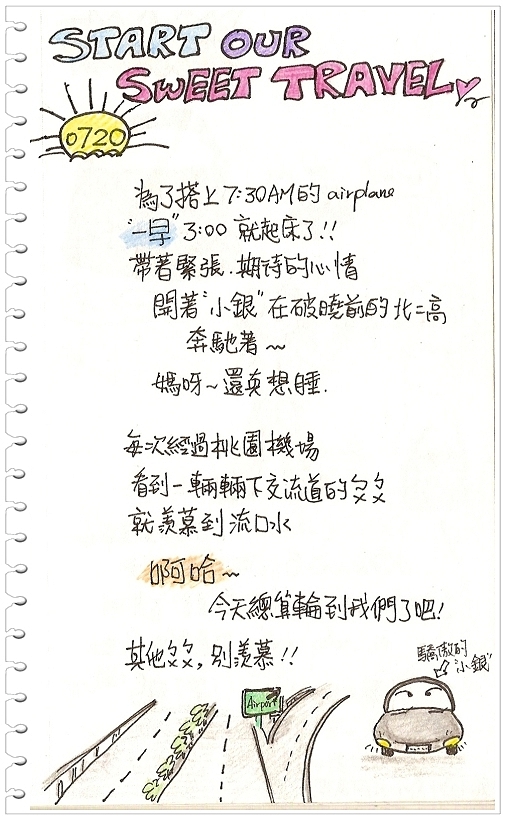 START OUR
SWEET TRAVEL
0720
為了搭上7:30AM的 airplane
"一早" 3:00 就起床了!!
帶著緊張.期待的心情
開著"小銀"在破曉前的北二高
奔馳著~
媽呀~還真想睡.
每次經過桃園機場
看到一輛輛下交流道的ㄆㄆ
就羨慕到流口水
啊哈~
今天總算輪到我們了吧!
其他ㄆㄆ,別羨慕!!
驕傲的
"小銀"
Airport